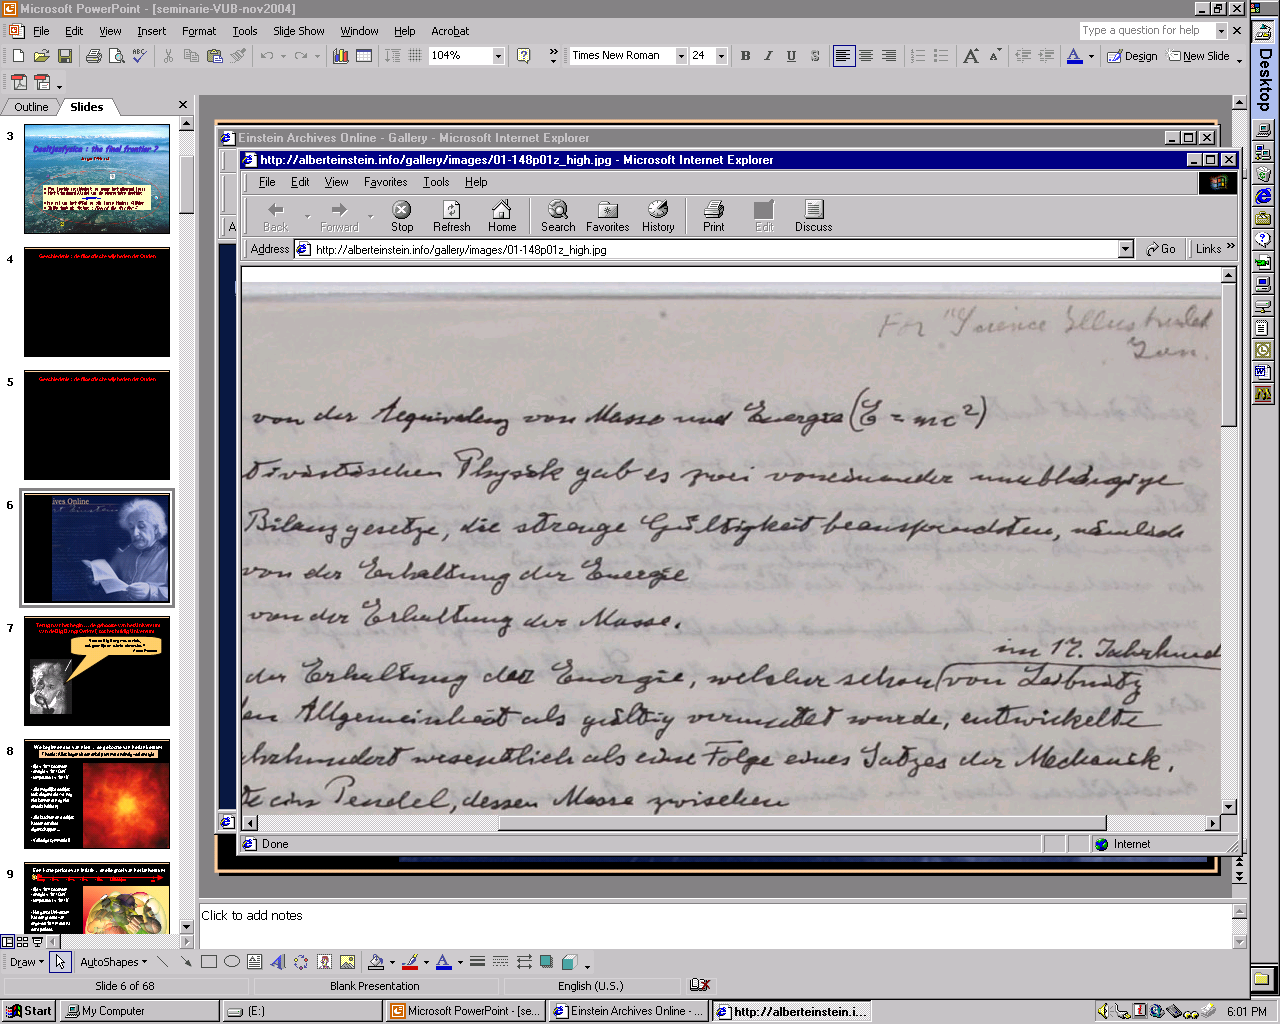 Microsoft PowerPoint - [seminarie-VUB-nov2004]
File Edit View Insert Format Tools Slide Show Window Help Acrobat
Type a question for help
104%
Times New Roman
24
B I U S
Design
New Slide
Outline
Slides
3
4
5
6
7
8
9
Desktop
Einstein Archives Online - Gallery - Microsoft Internet Explorer
http://alberteinstein.info/gallery/images/01-148p01z_high.jpg - Microsoft Internet Explorer
File Edit View Favorites Tools Help
Back Forward Stop Refresh Home Search Favorites History Print Edit Discuss
Address http://alberteinstein.info/gallery/images/01-148p01z_high.jpg Go Links
For "Science Illustrated
von der Aequivalenz von Masse und Energie (E = mc²)
tivistischen Physik gab es zwei voneinander unabhängige
Bilanzgesetze, die strenge Gültigkeit beanspruchten, nämlich
von der Erhaltung der Energie
von der Erhaltung der Masse.
im 17. Jahrhund
der Erhaltung der Energie, welcher schon von Leibnitz
Allgemeinheit als gültig vermutet wurde, entwickelte
ahrhundert wesentlich als eine Folge eines Satzes der Mechanik.
te ein Pendel, dessen Masse zwischen
Done
Internet
Click to add notes
Draw
AutoShapes
Slide 6 of 68
Blank Presentation
English (U.S.)
Start
My Computer
(E:)
Microsoft PowerPoint - [se...
Einstein Archives Online - ...
http://alberteinstein.i...
6:01 PM